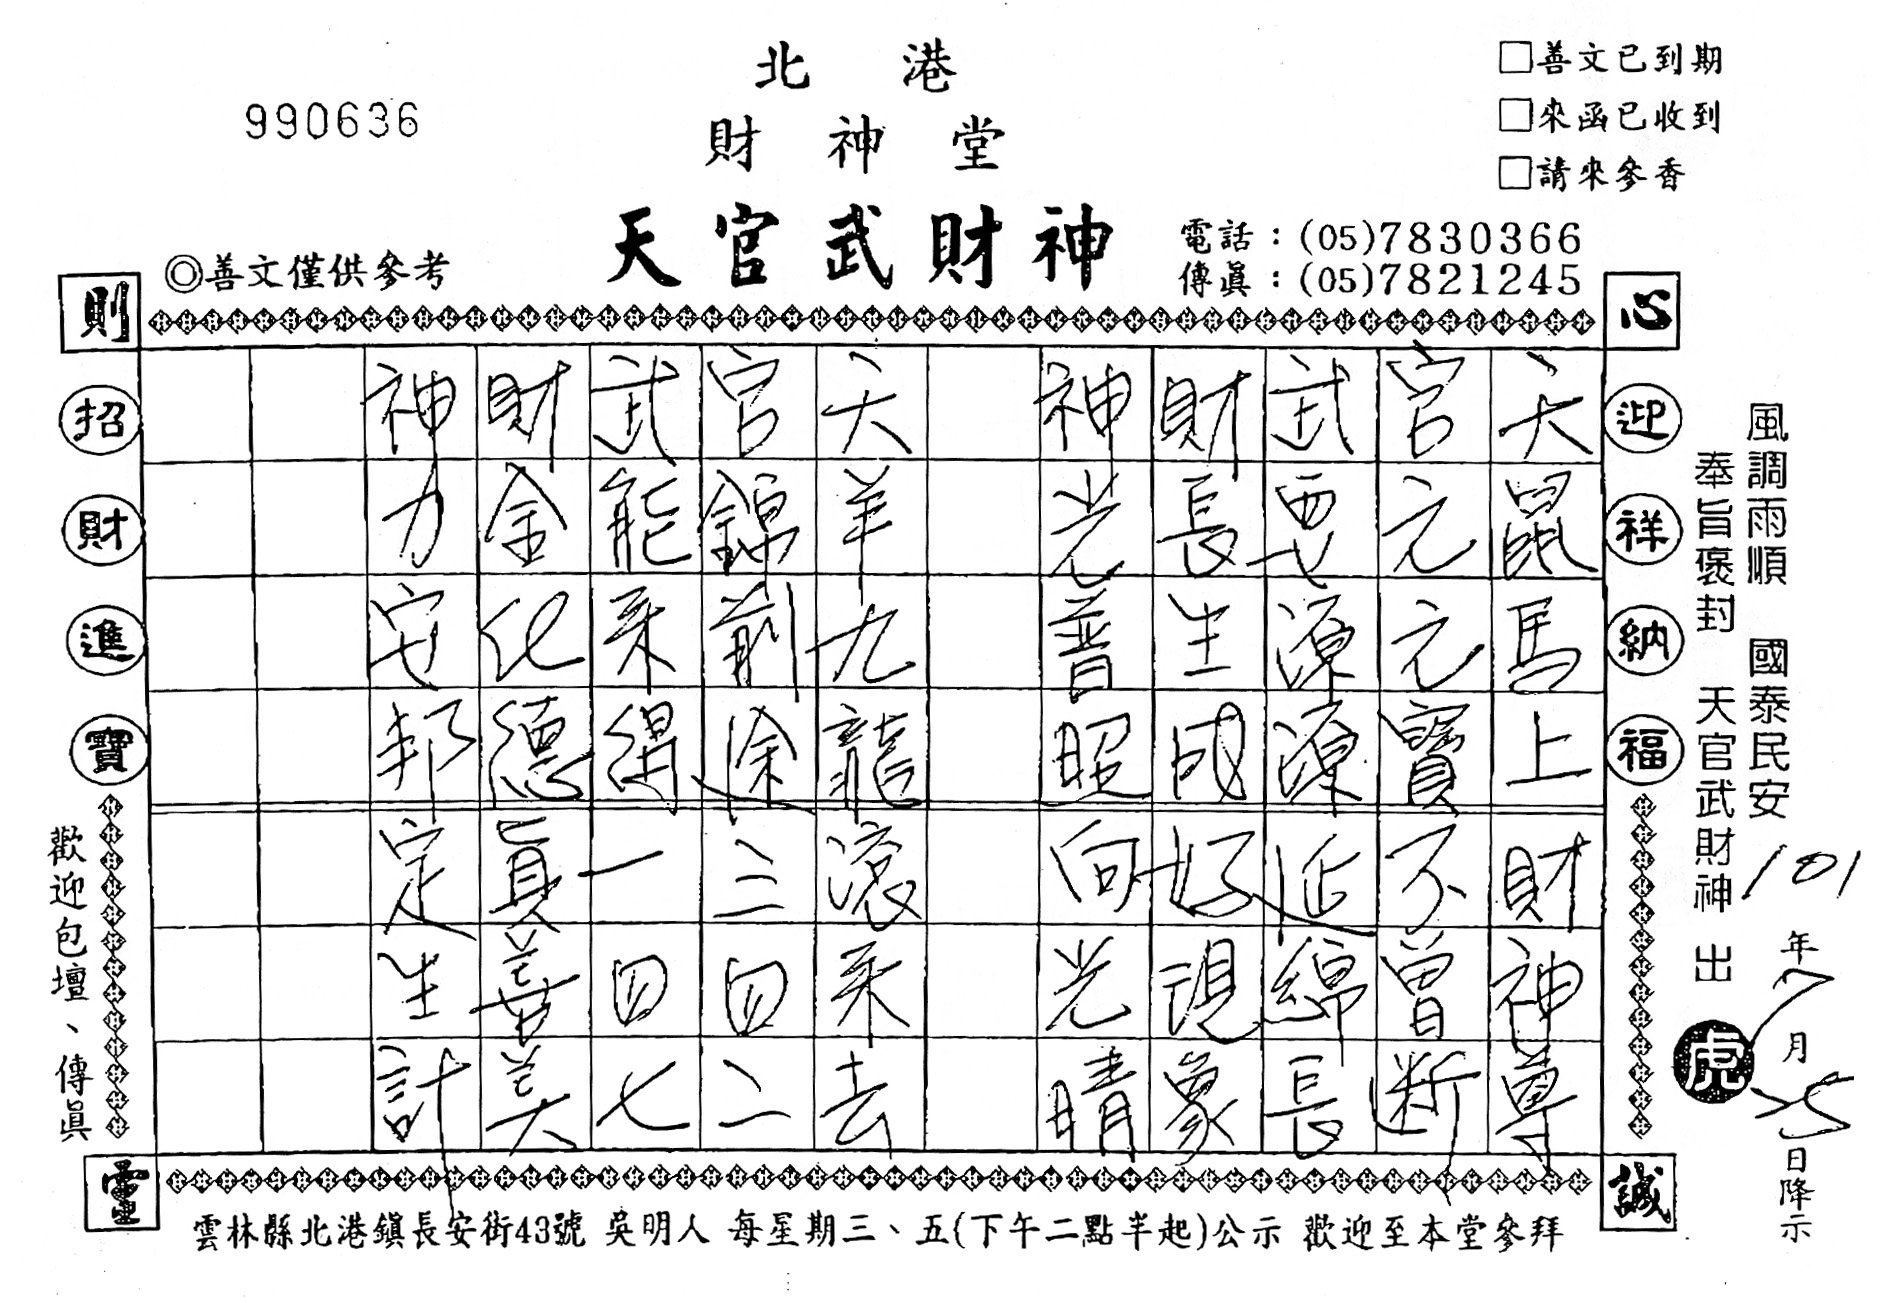 北港
財神堂
天官武財神
990636
□善文已到期
□來函已收到
□請來參香
電話：(05)7830366
傳真：(05)7821245
◎善文僅供參考
心
誠
則
靈
迎祥納福
招財進寶
風調雨順 國泰民安
奉旨褒封 天官武財神 出
虎
101年7月25日降示
天鼠馬上財神尊
官元元寶不曾斷
武要源源延綿長
財長生成好現象
神光普照向光晴
天羊九龍滾來去
官錦前除三四二
武能來得一四七
財金化德真善美
神力安邦定生計
歡迎包壇、傳真
雲林縣北港鎮長安街43號 吳明人 每星期三、五(下午二點半起)公示 歡迎至本堂參拜